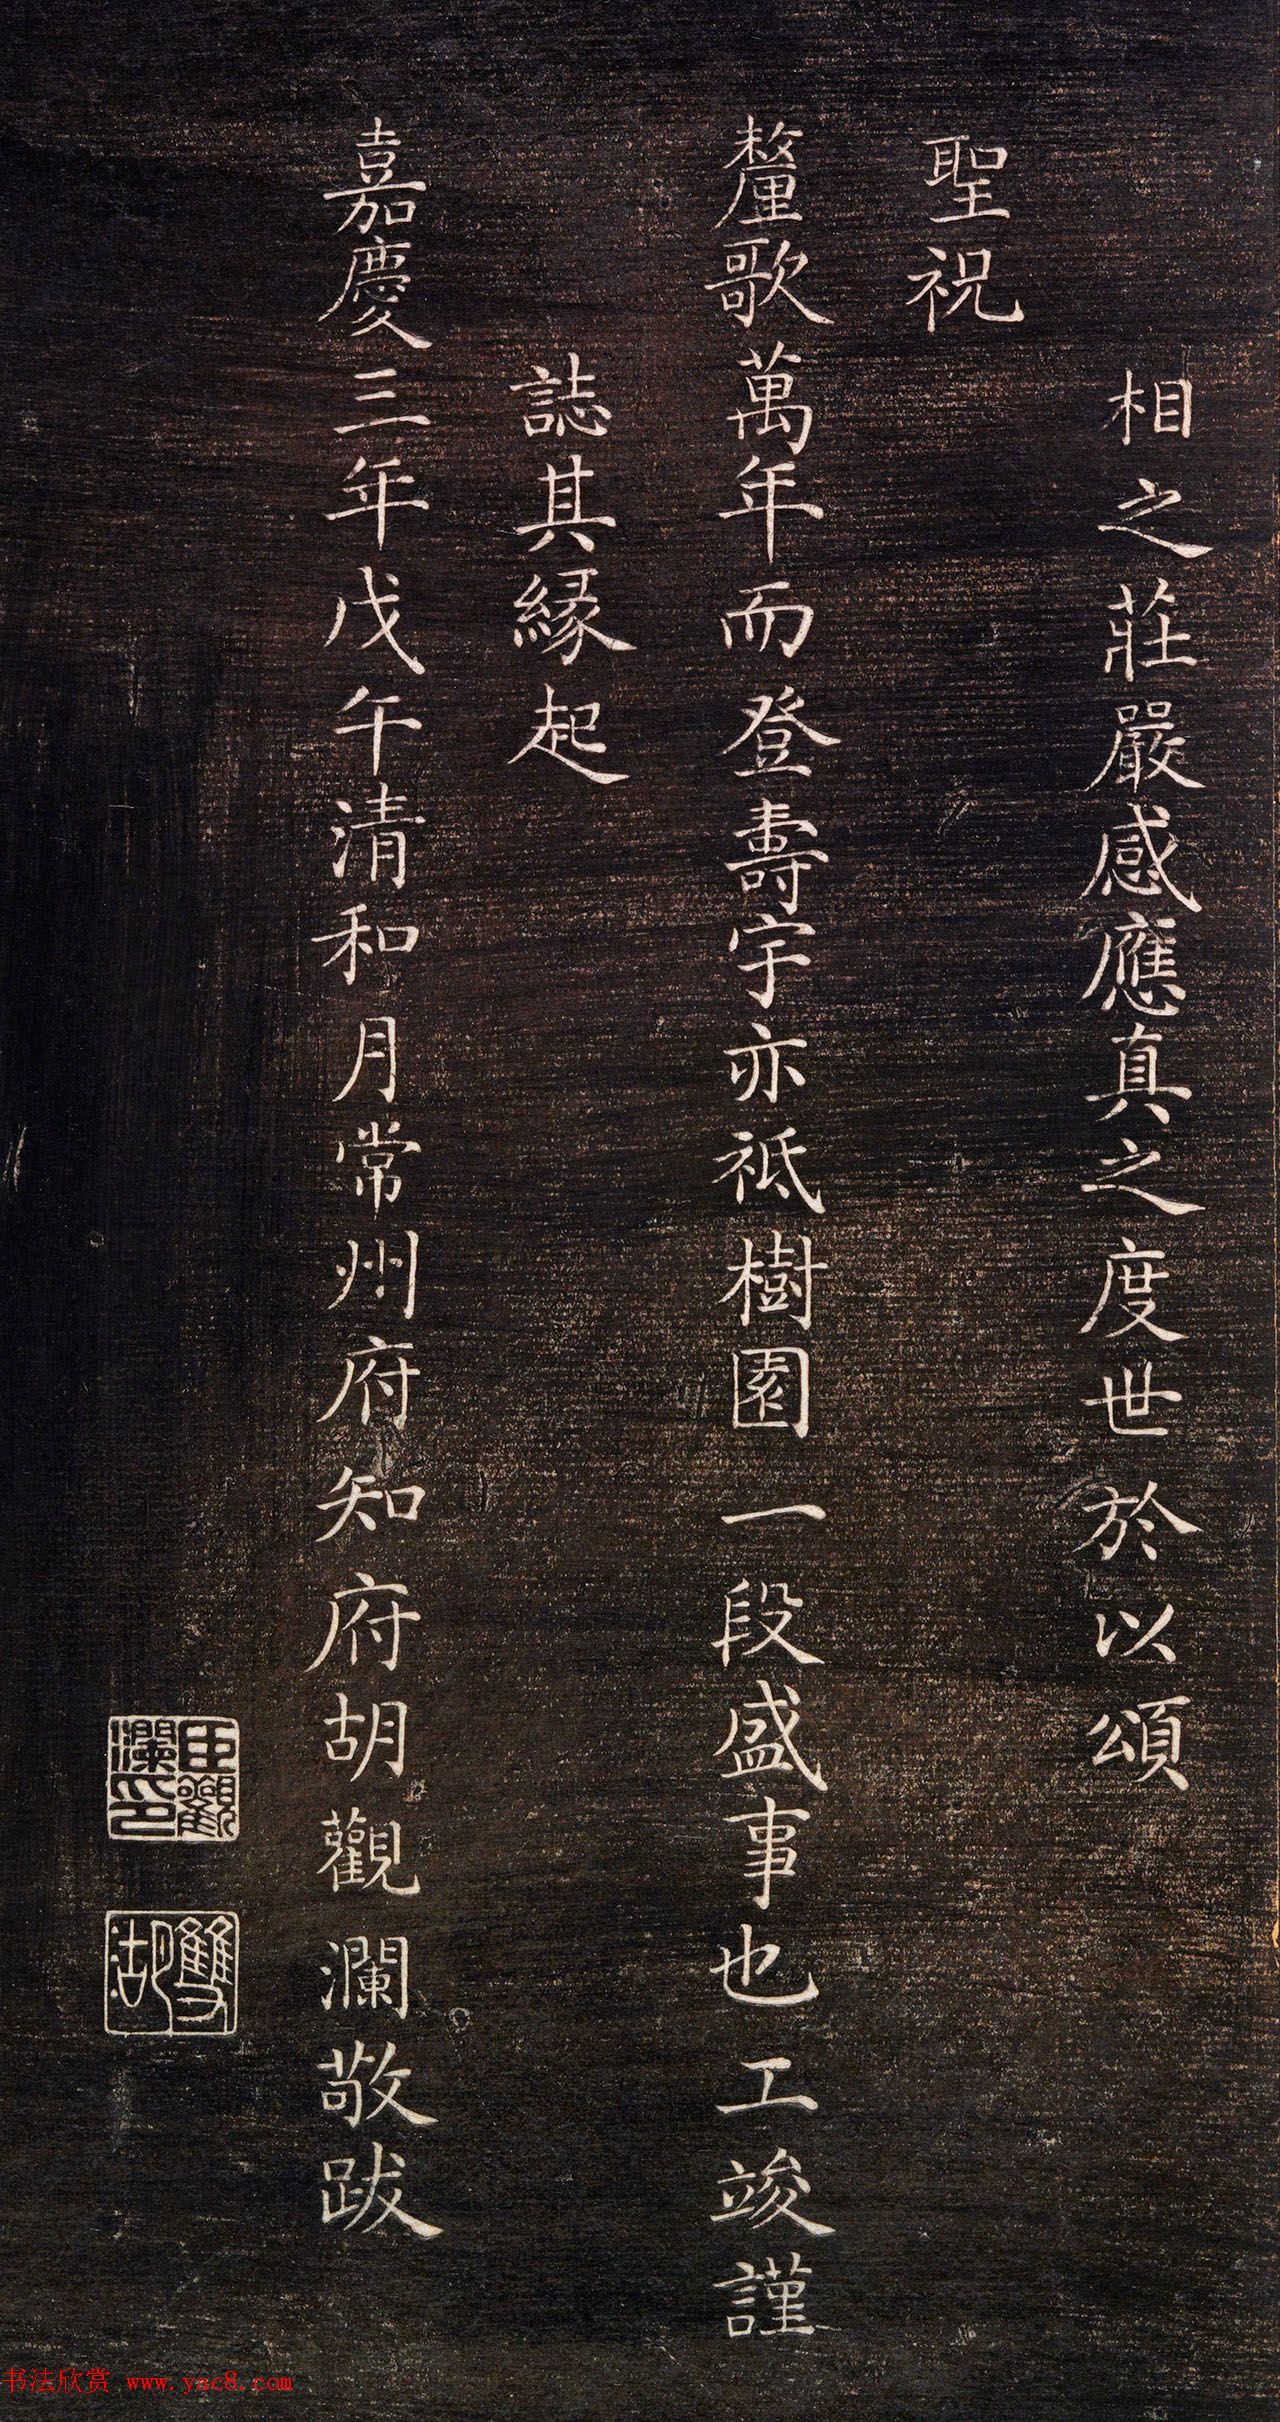 相之莊嚴感應真之度世於以頌
聖祝
釐歌萬年而登壽宇亦祗樹園一段盛事也工竣謹
誌其緣起
嘉慶三年戊午清和月常州府知府胡觀瀾敬跋
臣觀瀾印
雙湖
书法欣赏 www.yac8.com